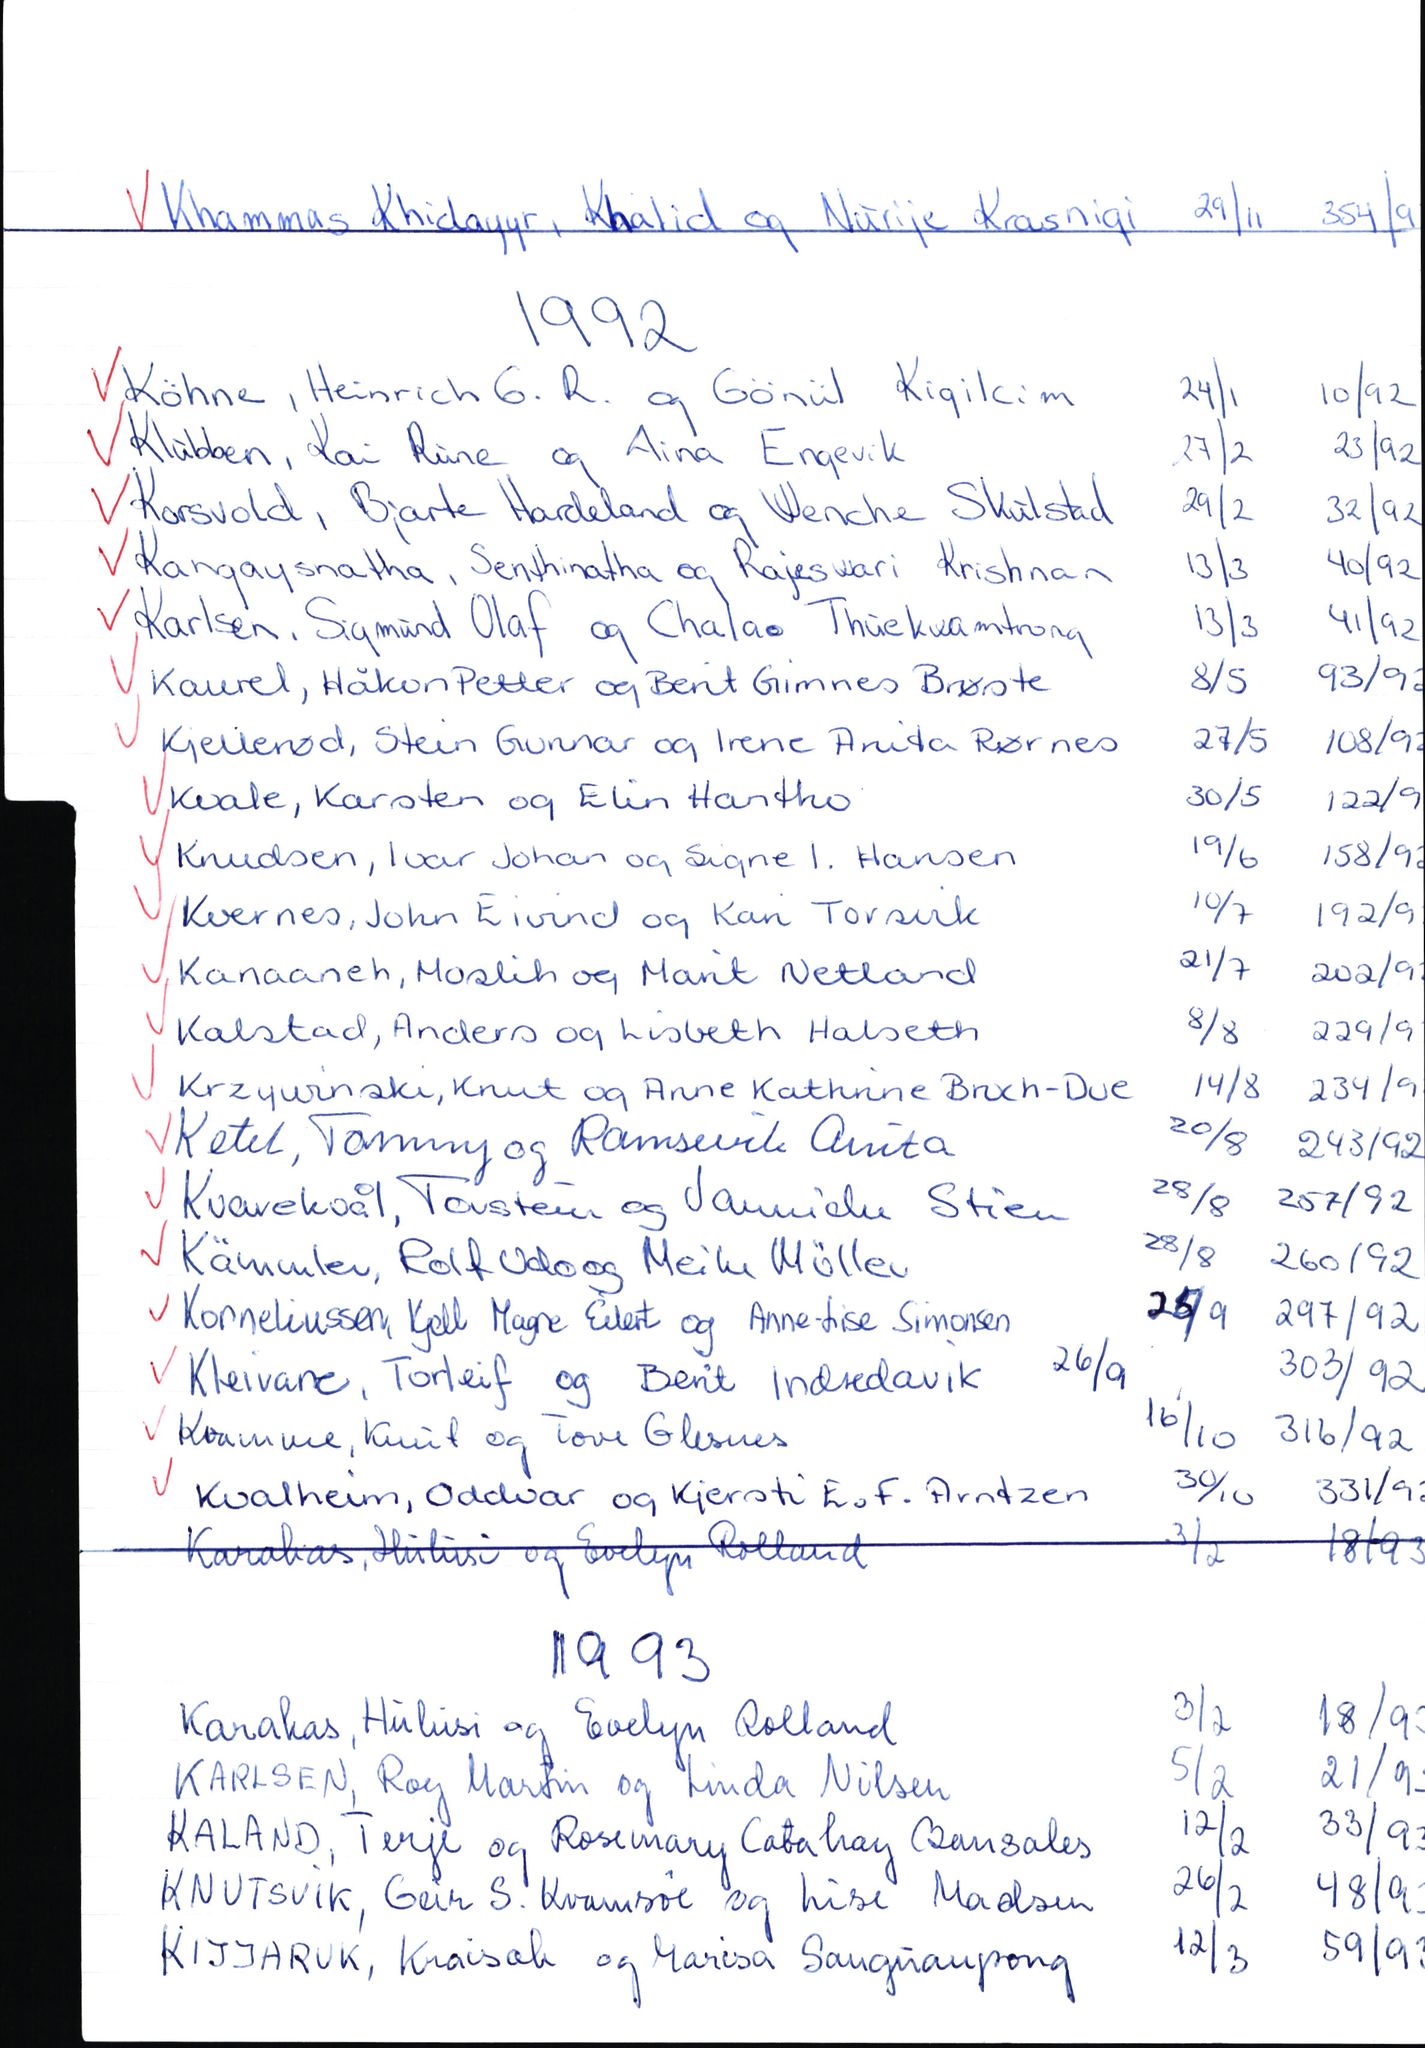 Khammas Khidayyr, Khalid og Nurije Krasniqi 29/11 354/9
1992
Köhne, Heinrich G. R. og Gönül Kiqilcim 24/1 10/92
Klübben, Kai Rune og Aina Engevik 27/2 23/92
Korsvold, Bjarte Hardeland og Wenche Skulstad 29/2 32/92
Kangaysnatha, Senthinatha og Rajeswari Krishnan 13/3 40/92
Karlsen, Sigmund Olaf og Chalao Thuekwamtrong 13/3 41/92
Kaurel, Håkon Petter og Berit Gimnes Brøste 8/5 93/92
Kjellerød, Stein Gunnar og Irene Anita Rørnes 27/5 108/92
Kvale, Karsten og Elin Hantho 30/5 122/9
Knudsen, Ivar Johan og Signe I. Hansen 19/6 158/92
Kvernes, John Eivind og Kari Torsvik 10/7 192/9
Kanaaneh, Moslih og Marit Netland 21/7 202/92
Kalstad, Anders og Lisbeth Halseth 8/8 229/9
Krzywinski, Knut og Anne Kathrine Bruch-Due 14/8 234/9
Ketel, Tommy og Ramsevik Anita 20/8 243/92
Kvarekvål, Torstein og Jannicke Stien 28/8 257/92
Kämmler, Rolf Udo og Meike Möller 28/8 260/92
Korneliussen, Kjell Magne Eilert og Anne-Lise Simonsen 25/9 297/92
Kleivane, Torleif og Berit Indredavik 26/9 303/92
Kvamme, Knut og Tove Glesnes 16/10 316/92
Kvalheim, Oddvar og Kjersti E. F. Arntzen 30/10 331/92
Karakas, Hulusi og Evelyn Rolland 3/2 18/93
1993
Karakas, Hulusi og Evelyn Rolland 3/2 18/93
KARLSEN, Roy Martin og Linda Nilsen 5/2 21/93
KALAND, Terje og Rosemary Catahay Gansales 12/2 33/93
KNUTSVIK, Geir S. Kvamsöe og Lise Madsen 26/2 48/93
KIJJARUK, Kraisak og Marisa Sanguanpong 12/3 59/93